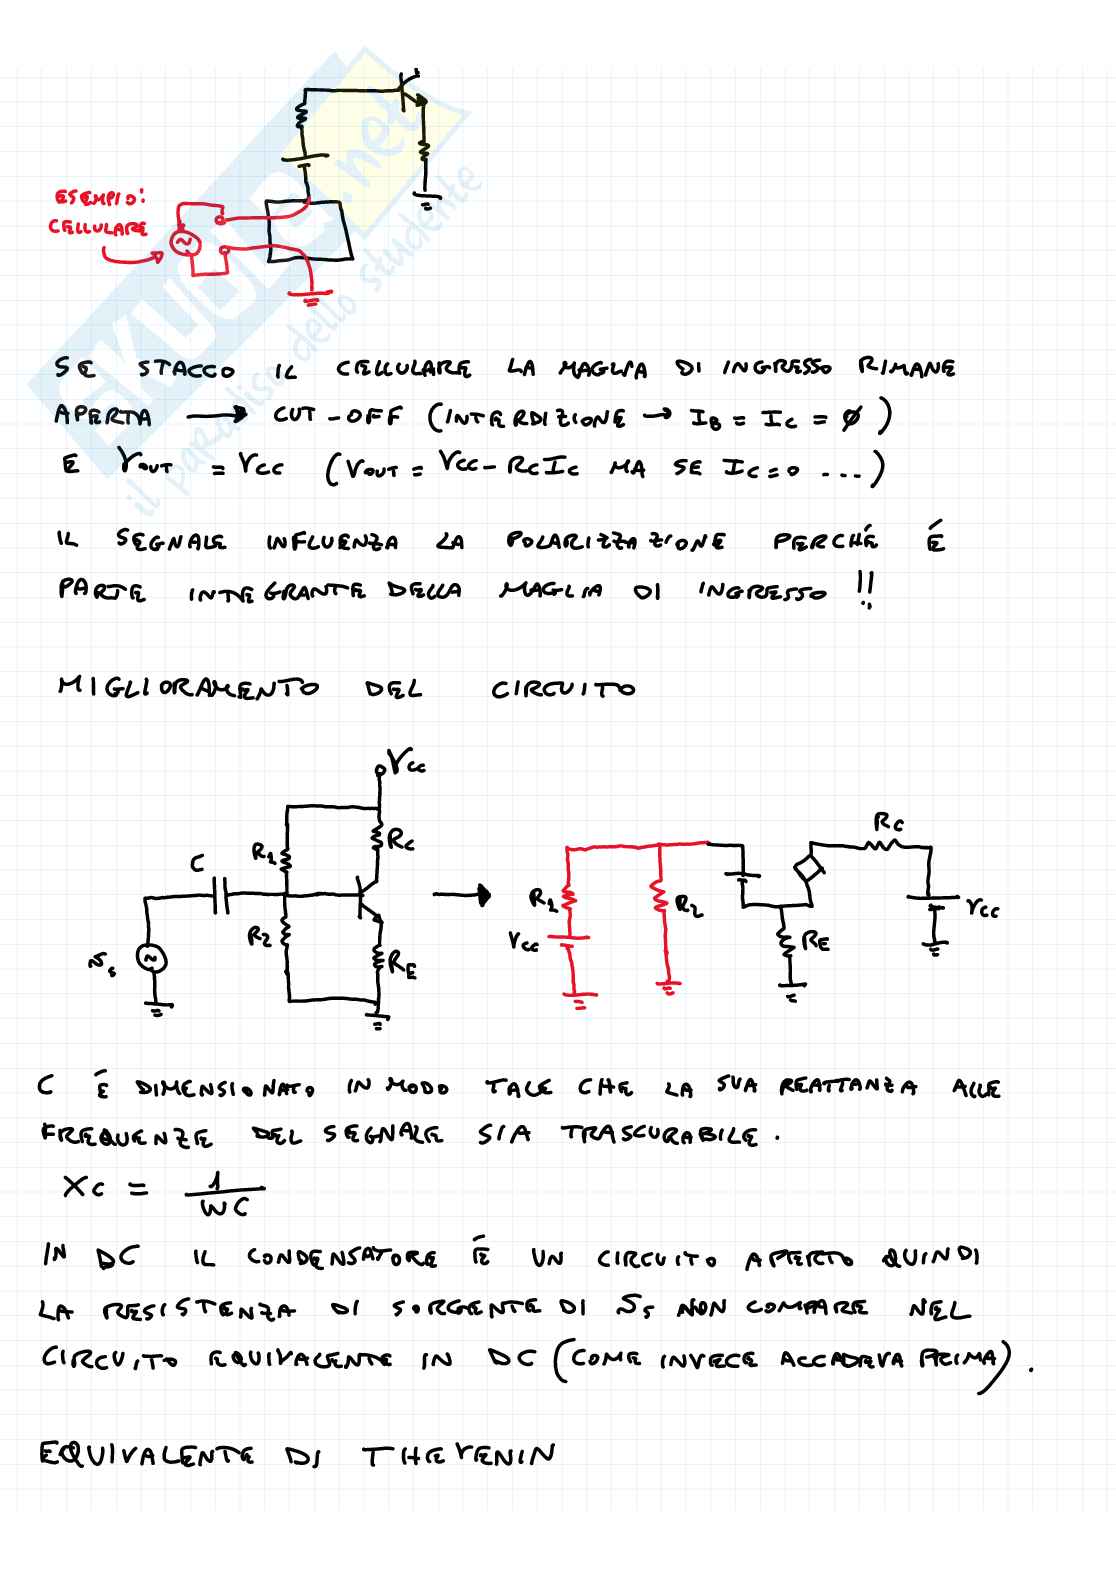 ESEMPIO:
CELLULARE
SE STACCO IL CELLULARE LA MAGLIA DI INGRESSO RIMANE
APERTA → CUT-OFF (INTERDIZIONE → IB = IC = ∅)
E VOUT = VCC (VOUT = VCC - RCIC MA SE IC=0 ...)
IL SEGNALE INFLUENZA LA POLARIZZAZIONE PERCHÉ É
PARTE INTEGRANTE DELLA MAGLIA DI INGRESSO !!
MIGLIORAMENTO DEL CIRCUITO
VCC
R1
RC
C
R2
RE
Ns
R1
VCC
R2
RE
RC
VCC
C É DIMENSIONATO IN MODO TALE CHE LA SUA REATTANZA ALLE
FREQUENZE DEL SEGNALE SIA TRASCURABILE.
XC = 1/WC
IN DC IL CONDENSATORE É UN CIRCUITO APERTO QUINDI
LA RESISTENZA DI SORGENTE DI Ns NON COMPARE NEL
CIRCUITO EQUIVALENTE IN DC (COME INVECE ACCADEVA PRIMA).
EQUIVALENTE DI THEVENIN
SKUOLA.net
il paradiso dello studente